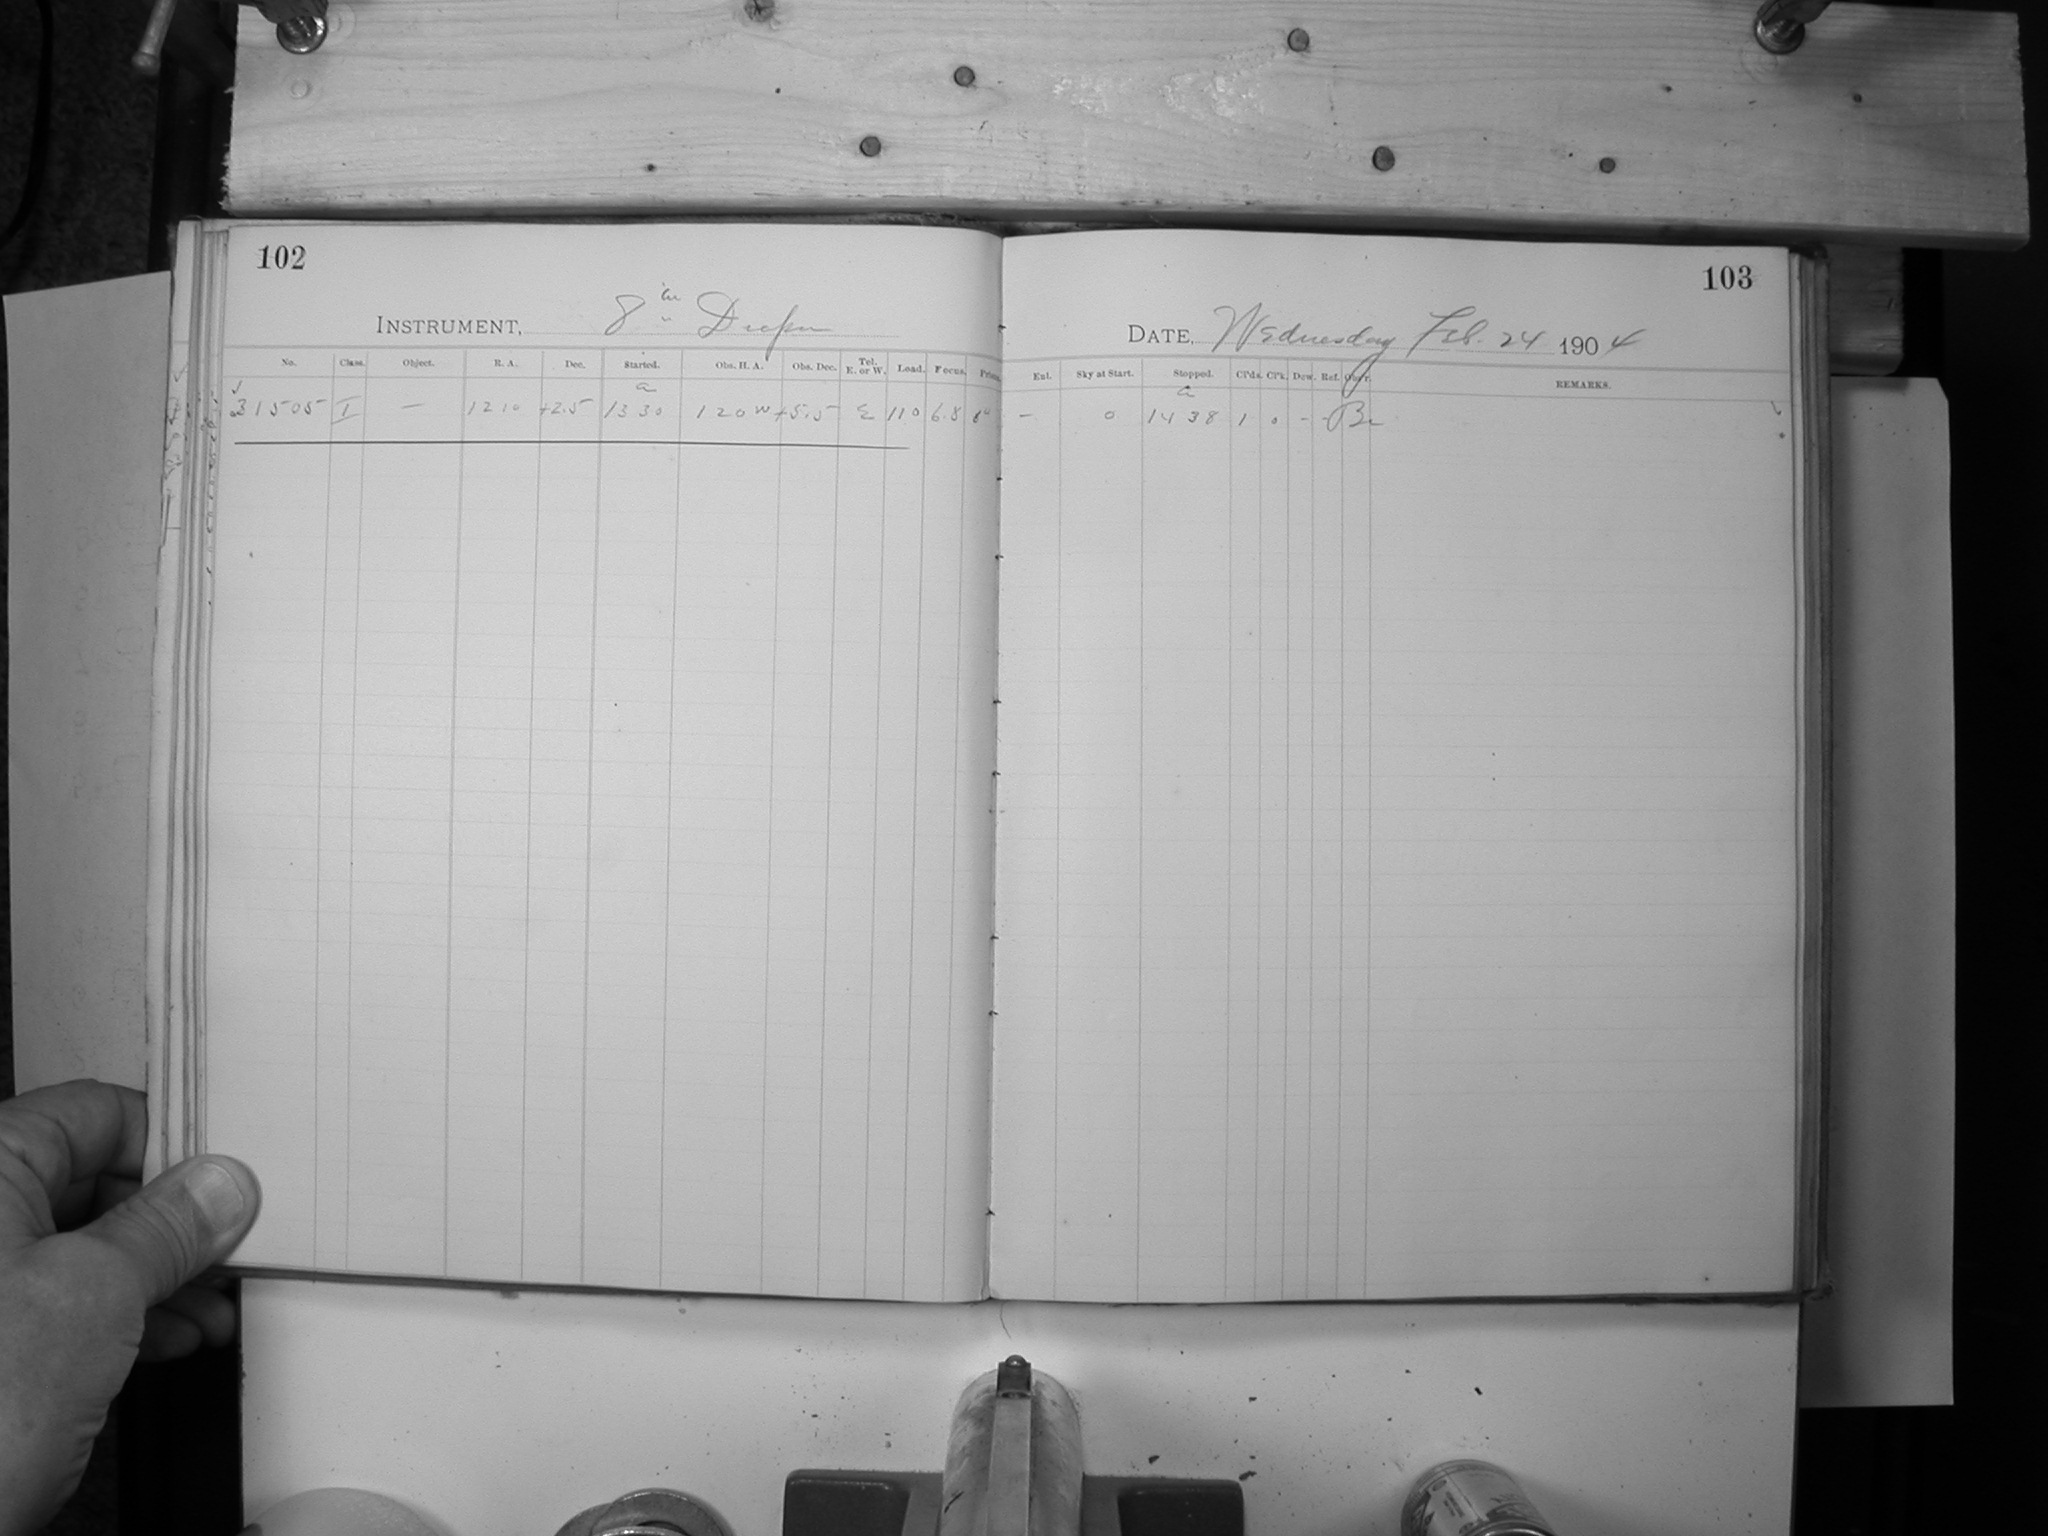 102
INSTRUMENT, 8 in Draper
No. Class. Object. R. A. Dec. Started. Obs. H. A. Obs. Dec. Tel. E. or W. Load. Focus. Prism.
a
31505 I — 12 10 +2.5 13 30 1 20 W +5.5 E 110 6.8 8°
103
DATE, Wednesday Feb. 24 1904
Ext. Sky at Start. Stopped. Cl'ds. Cl'k. Dew. Ref. Obs'r. REMARKS.
a
— 0 14 38 1 0 - -